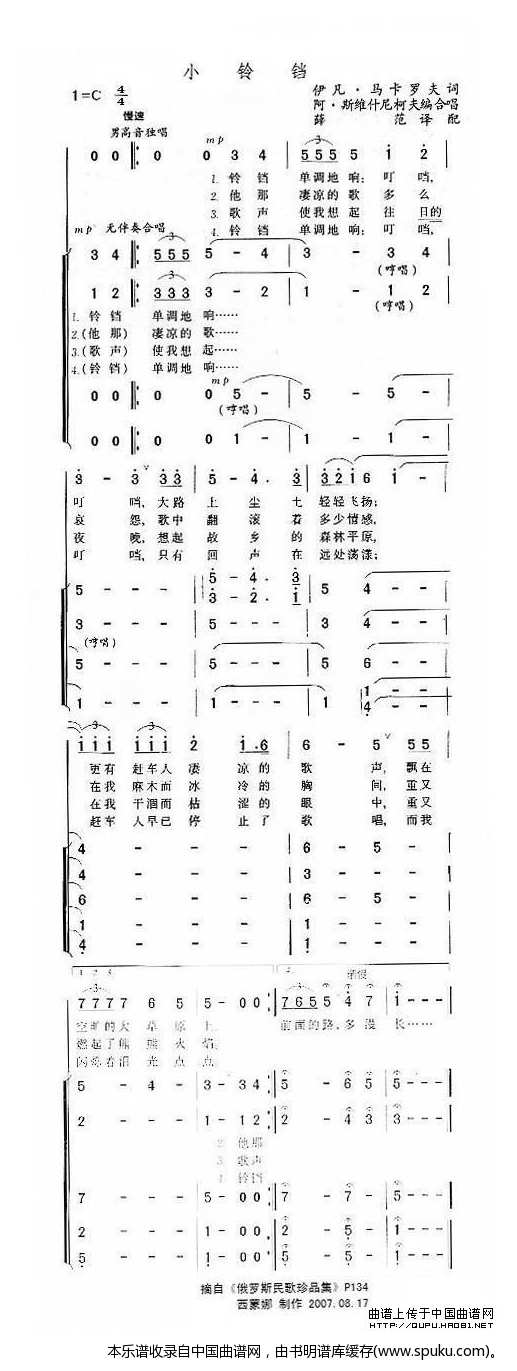 小 铃 铛
1=C 4/4
伊凡·马卡罗夫词
阿·斯维什尼柯夫编合唱
薛 范译配
慢速
男高音独唱
mp
0 0 0 3 4 | 555 5 1 2
1. 铃 铛 单调地响：叮 当，
2. 他 那 凄凉的歌 多 么
3. 歌 声 使我想起 往 日的
4. 铃 铛 单调地响：叮 当，
mp 无伴奏合唱
3 4 555 5 - 4 3 - 3 4
(哼唱)
1 2 333 3 - 2 1 - 1 2
(哼唱)
1. 铃 铛 单调地 响……
2.(他 那) 凄凉的 歌……
3.(歌 声) 使我想 起……
4.(铃 铛) 单调地 响……
mp
0 0 0 0 5 - 5 - - 5 -
(哼唱)
0 0 0 0 1 - 1 - - 1 -
3 - 3 33 5 - 4. 3 3216 1 -
叮 当，大路 上 尘 土 轻轻飞扬；
哀 怨，歌中 翻 滚 着 多少情感，
夜 晚，想起 故 乡 的 森林平原，
叮 当，只有 回 声 在 远处荡漾；
5 - - - 5 - 4. 3 5 4 - -
3 - 2. 1
3 - - - 3 4 - -
(哼唱)
5 - - - 5 - - - 5 6 - -
1 - - - 1 - - - 1 - - -
4 - - -
111 111 2 1.6 6 - 5 55
更有 赶车人 凄 凉的 歌 声，飘在
在我 麻木而 冰 冷的 胸 间，重又
在我 干涸而 枯 涩的 眼 中，重又
赶车 人早已 停 止了 歌 唱，而我
4 - - - 6 - 5 -
4 - - - 3 - - -
6 - - - 6 - - -
1 - - - 1 - - -
4 - - -
1 2 3
7777 7 6 5 5 - 0 0 765 5 4 7 1 - - -
空旷的大 草 原上。
前面的路，多漫 长……
燃起了熊 熊 火焰；
闪烁着泪 光 点点。
5 - 4 - 3 - 3 4 5 - 6 5 5 - - -
2 - - - 1 - 1 2 2 - 4 3 3 - - -
2. 他那
3. 歌声
4. 铃铛
7 - - - 5 - 0 0 7 - 7 - 5 - - -
2 - - - 1 - 0 0 2 - 5 - 1 - - -
5 - - - 1 - 0 0 5 - 5 - 1 - - -
摘自《俄罗斯民歌珍品集》P134
西蒙娜 制作 2007.08.17
曲谱上传于中国曲谱网
http://QUPU.HAO81.NET
本乐谱收录自中国曲谱网，由书明谱库缓存(www.spuku.com)。